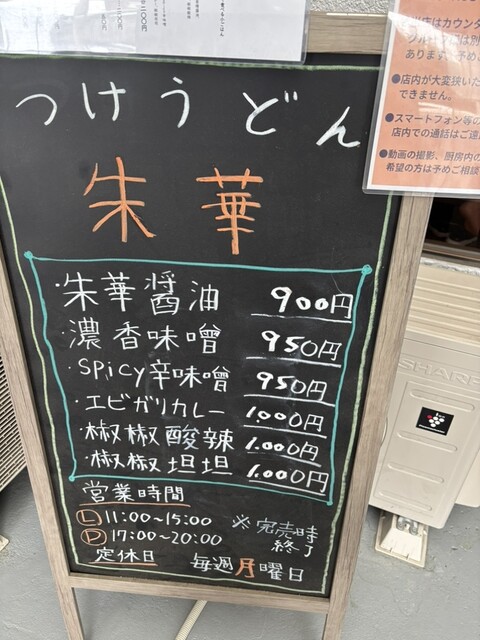 つけうどん
朱華
・朱華醤油 900円
・濃香味噌 950円
・spicy辛味噌 950円
・エビガリカレー 1,000円
・椒椒酸辣 1,000円
・椒椒坦坦 1,000円
営業時間
Ⓛ11:00~15:00
Ⓓ17:00~20:00
※完売時
終了
定休日 毎週月曜日
当店はカウンタ
あります。予めご
●店内が大変狭いた
できません。
●スマートフォン等の
店内での通話はご遠
●動画の撮影、厨房内の
希望の方は予めご相談
SHARP